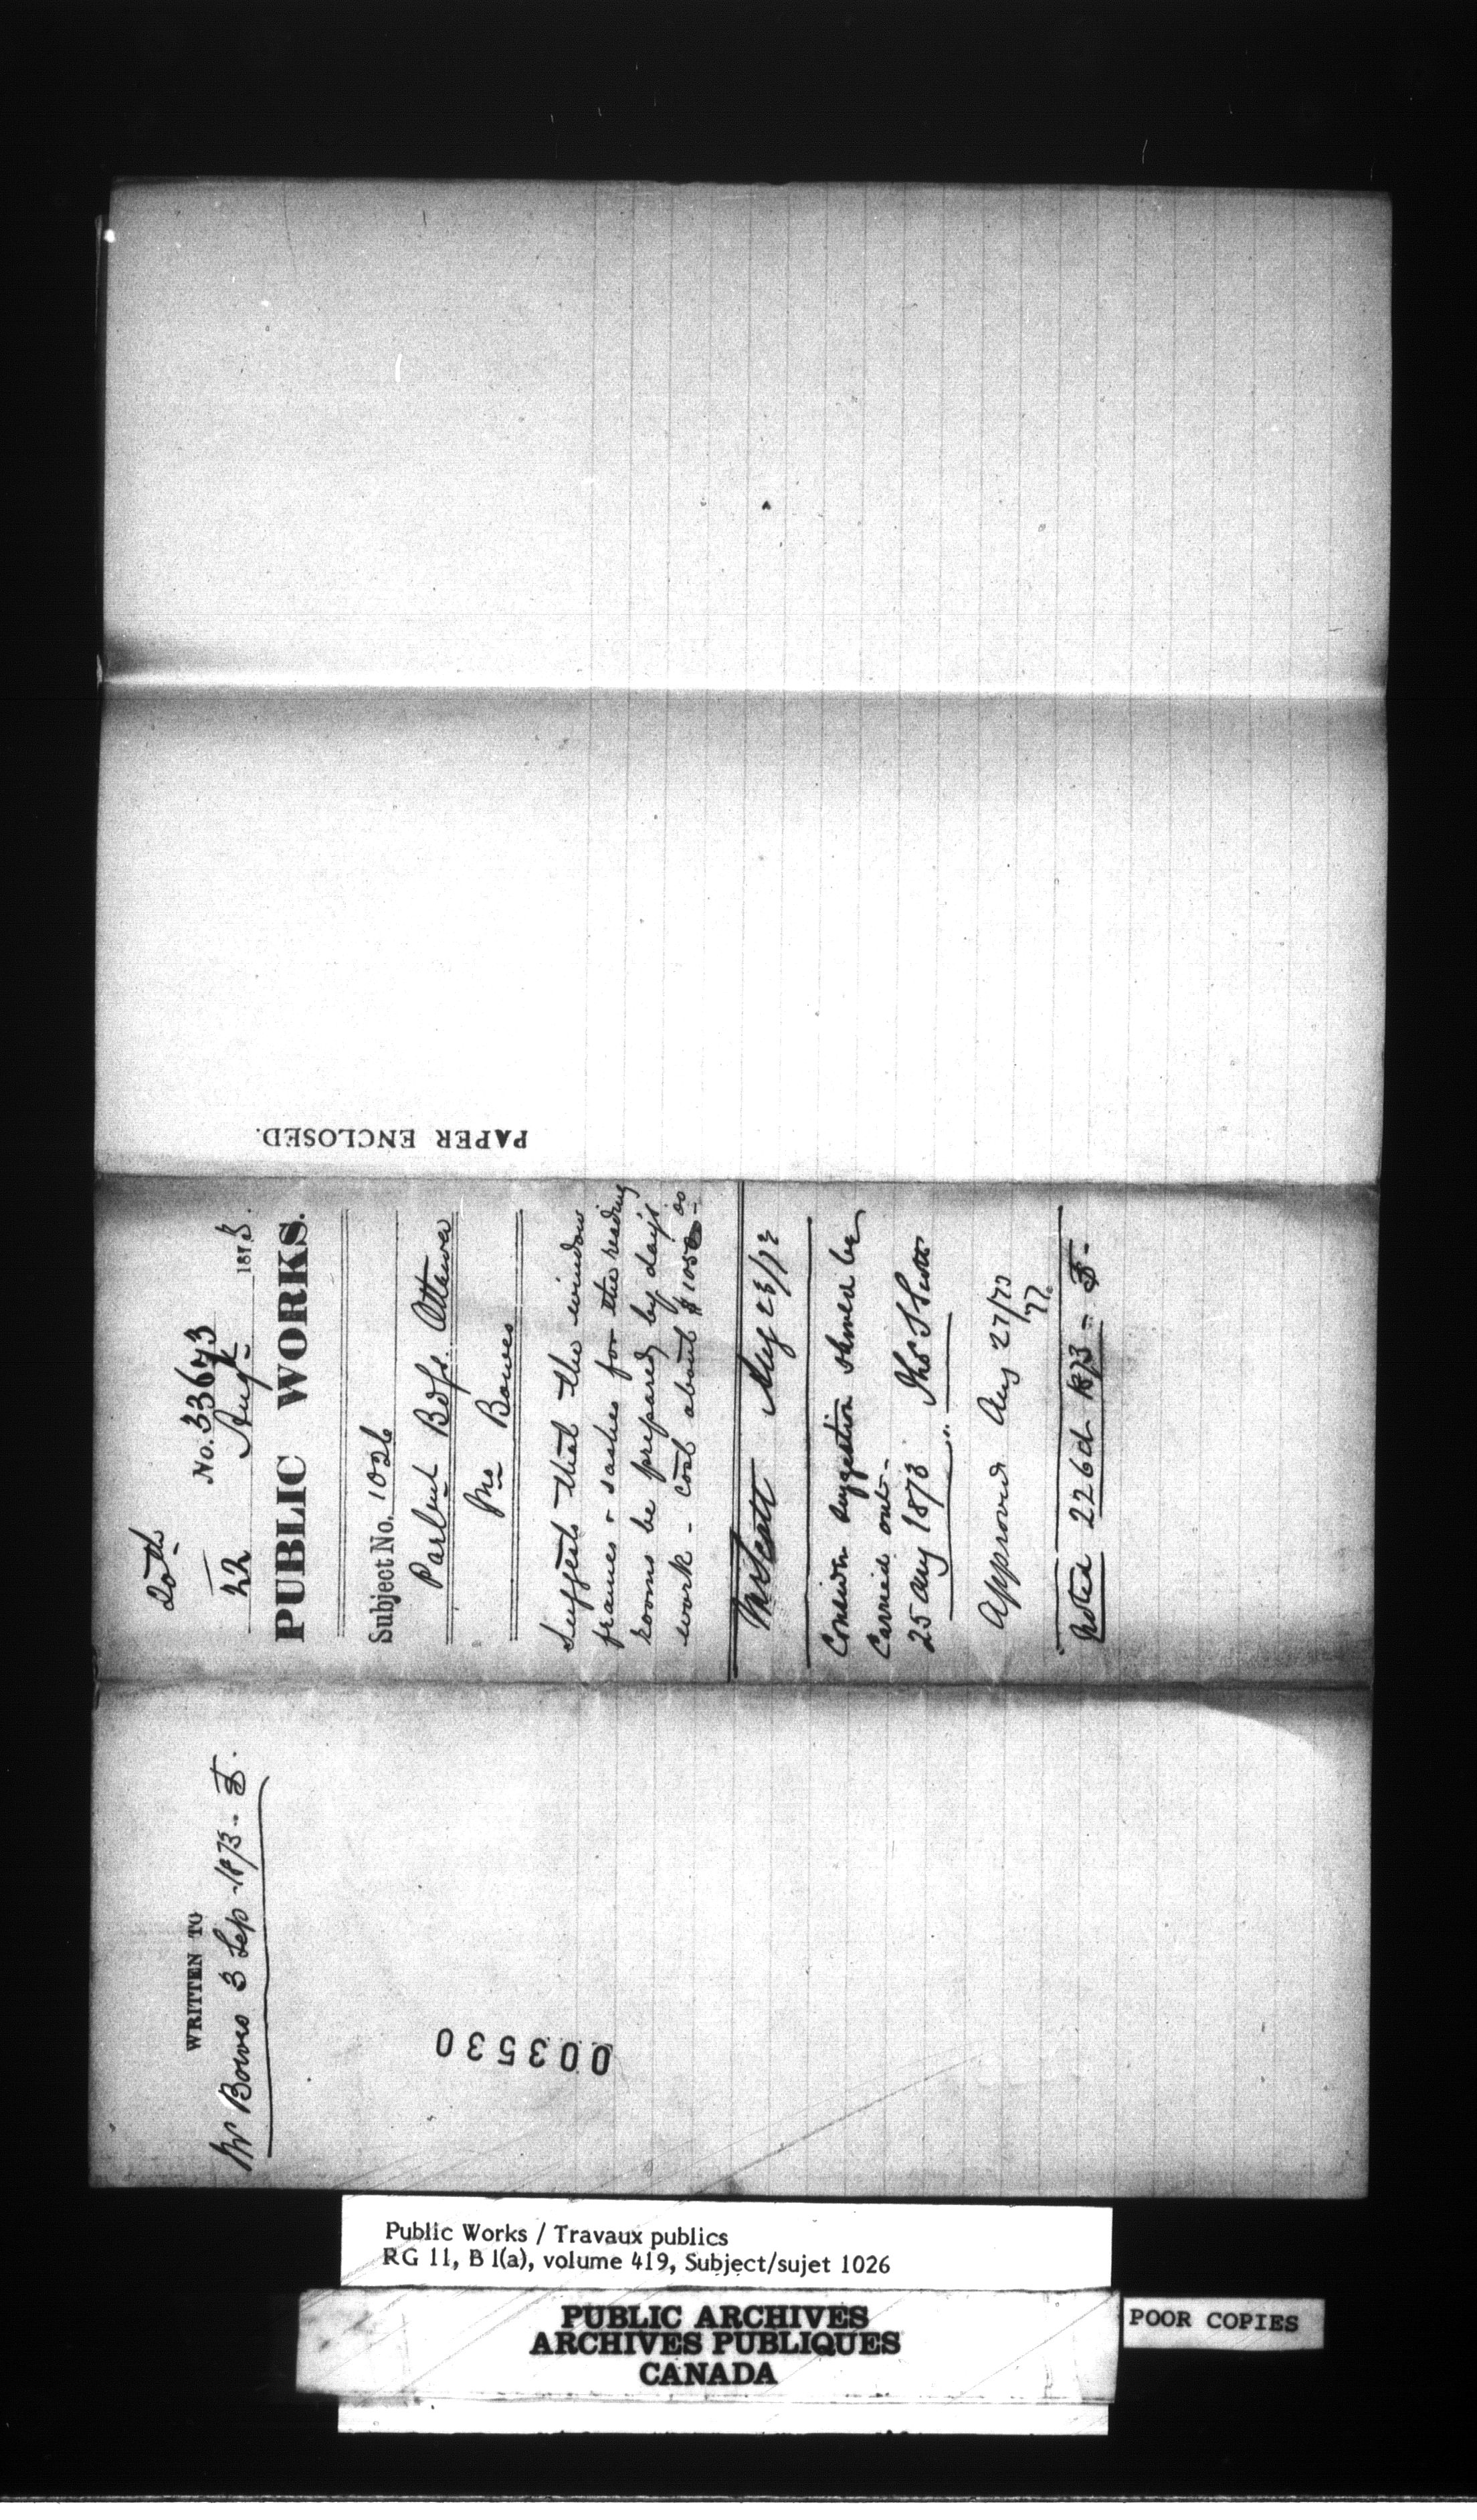 20th
No. 33673
22 Augt 1873.
PUBLIC WORKS.
Subject No. 1026
Parlnt Bdgs. Ottawa
Mr Bowes
Suggests that the window
frames & sashes for the reading
rooms be prepared by day's
work - cost about $1050 00
Mr Scott Aug 23/73
Consider suggestion should be
Carried out -
25 Aug 1873 Thos S Scott
Approved Aug 27/73
Noted 226d 1873
PAPER ENCLOSED.
WRITTEN TO
Mr Bowes 3 Sep - 1873 -
003530
Public Works / Travaux publics
RG 11, B 1(a), volume 419, Subject/sujet 1026
PUBLIC ARCHIVES
ARCHIVES PUBLIQUES
CANADA
POOR COPIES